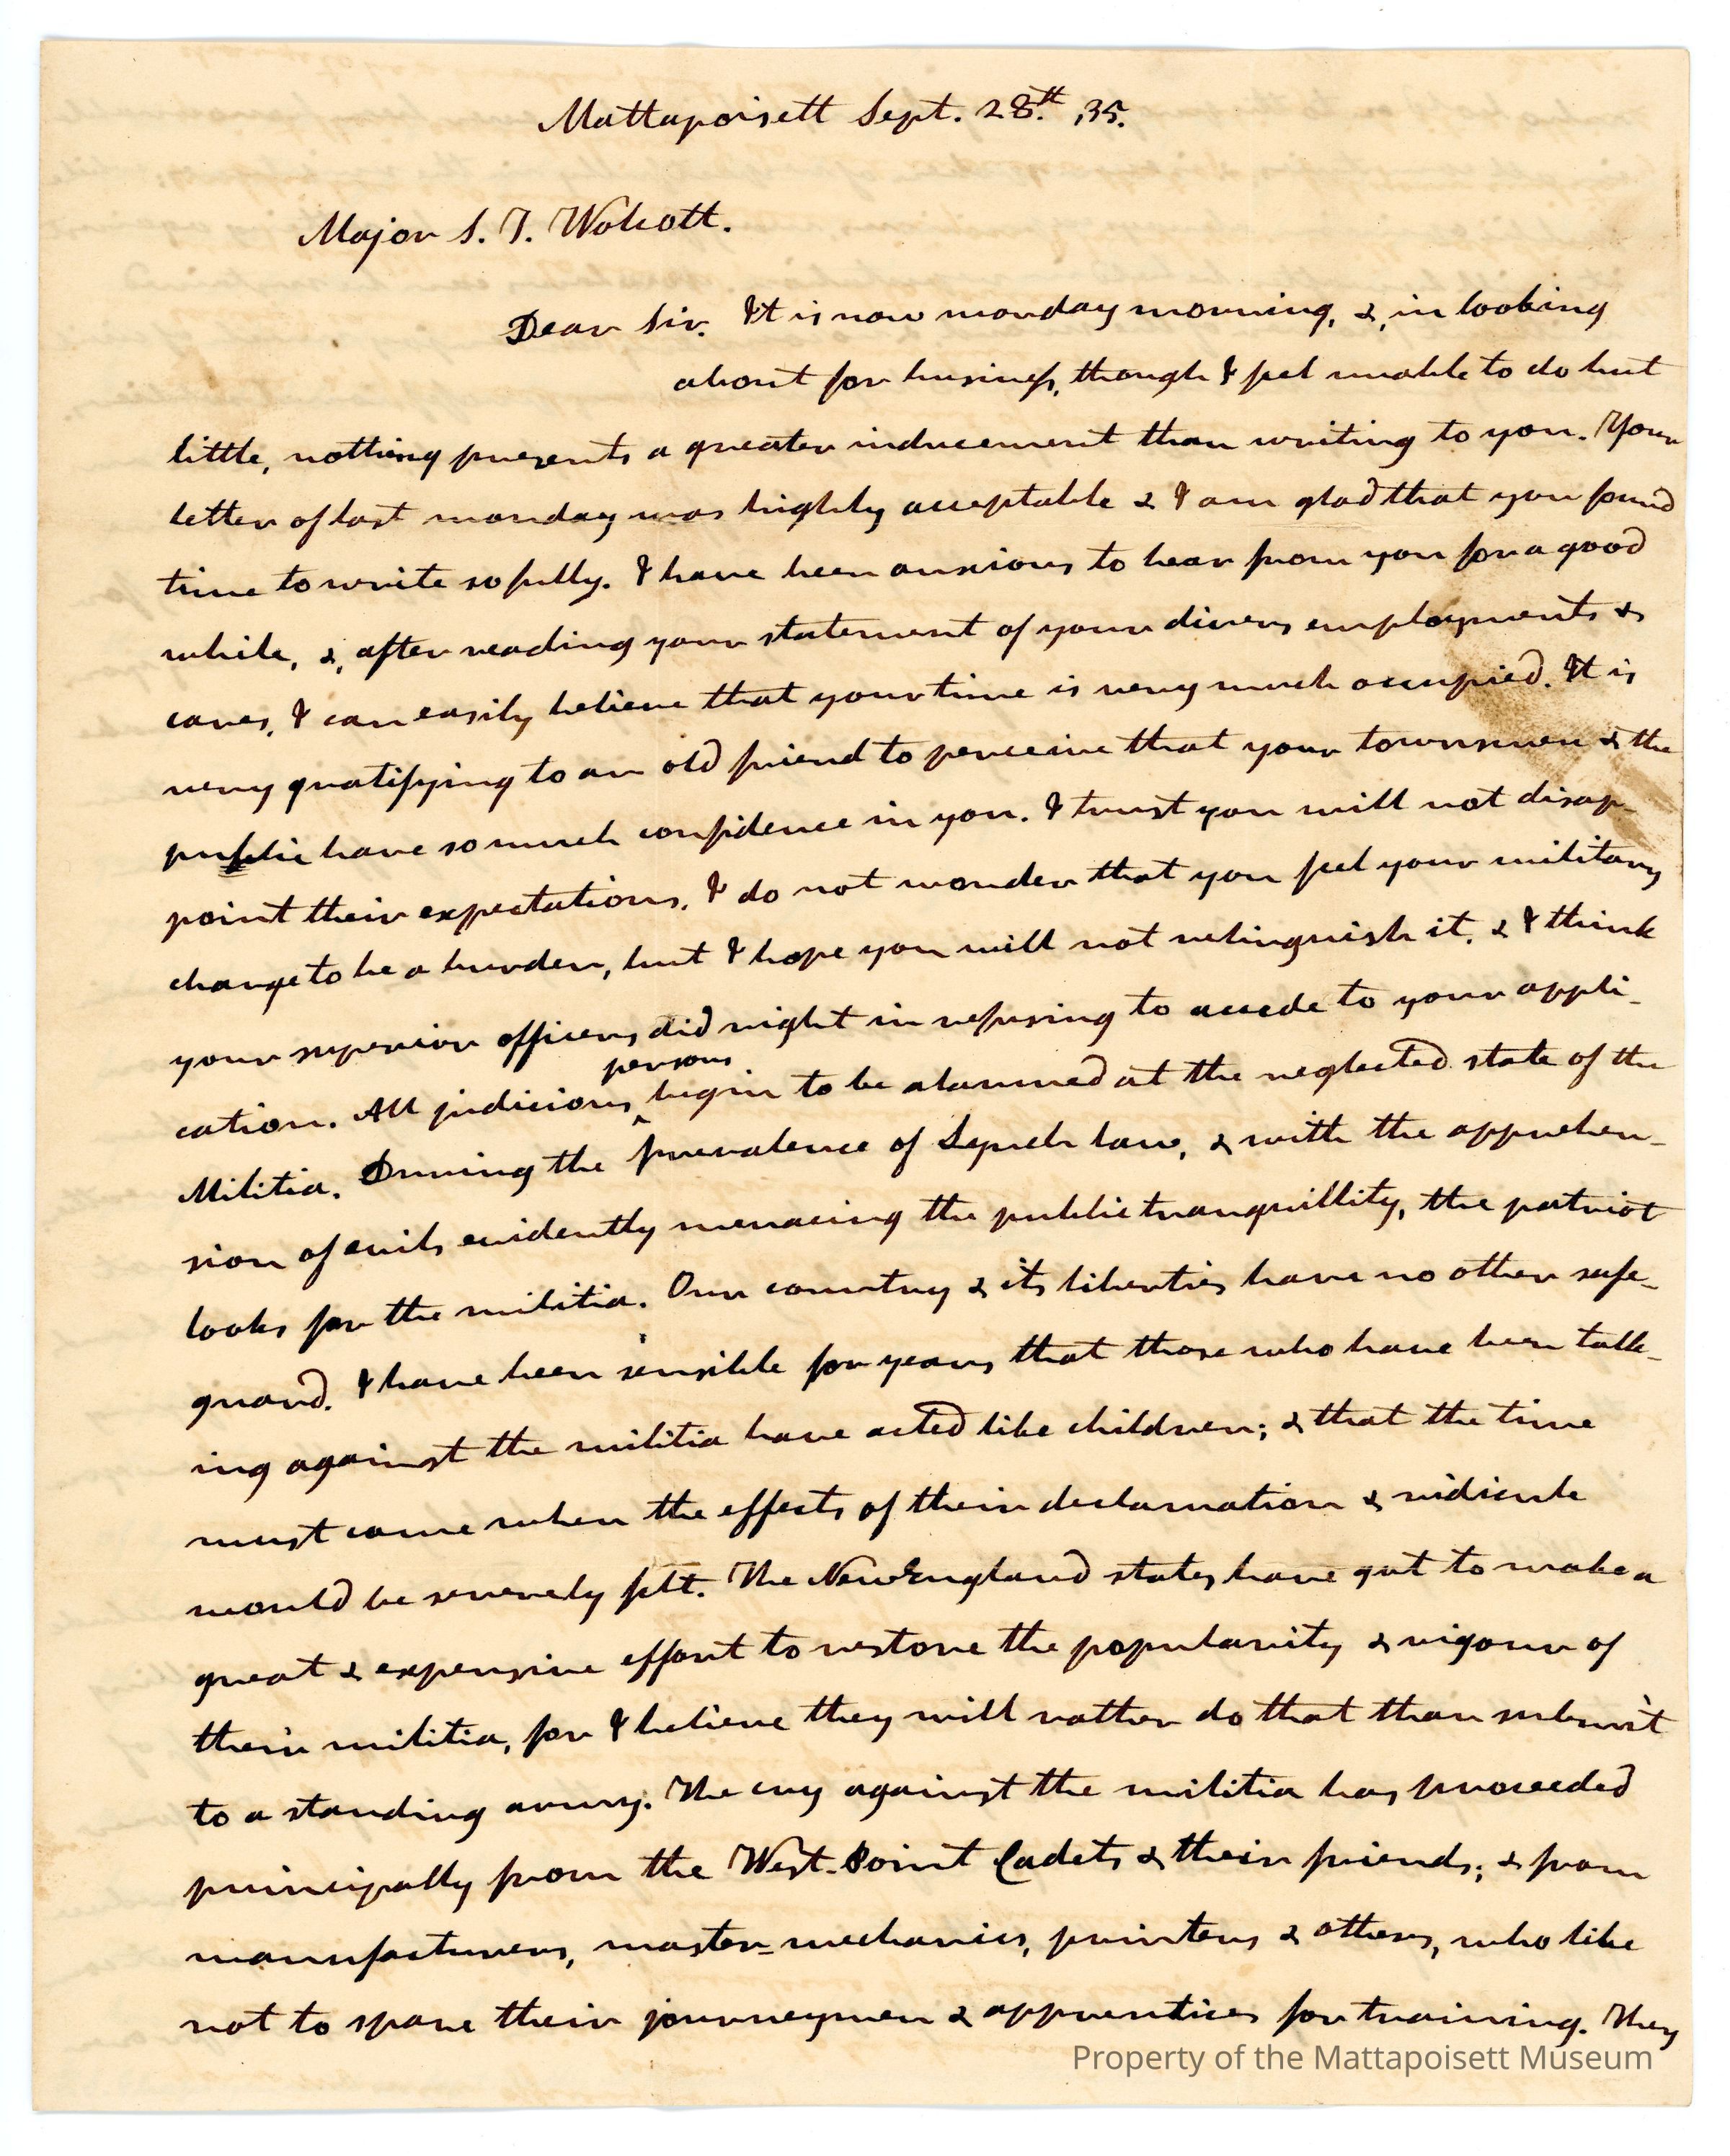 Mattapoisett Sept. 28.th ,35.
Major S. T. Wolcott.
Dear Sir. It is now monday morning, &, in looking
about for business, though I feel unable to do but
little, nothing presents a greater inducement than writing to you. Your
letter of last monday was highly acceptable & I am glad that you found
time to write so fully. I have been anxious to hear from you for a good
while, &, after reading your statement of your divers employments &
cares, I can easily believe that your time is very much occupied. It is
very gratifying to an old friend to perceive that your townsmen & the
public have so much confidence in you. I trust you will not disap-
point their expectations. I do not wonder that you feel your military
charge to be a burden, but I hope you will not relinquish it. & I think
your superior officers did right in refusing to accede to your appli-
cation. All judicious persons begin to be alarmed at the neglected state of the
Militia. During the prevalence of Lynch law, & with the apprehen-
sion of evils evidently menacing the public tranquillity, the patriot
looks for the militia. Our country & its liberties have no other safe-
guard. I have been sensible for years that those who have been talk-
ing against the militia have acted like children; & that the time
must come when the effects of their declamation & ridicule
would be severely felt. The New England states have got to make a
great & expensive effort to restore the popularity & vigour of
their militia, for I believe they will rather do that than submit
to a standing army. The cry against the militia has proceeded
principally from the West-Point Cadets & their friends; & from
manufacturers, master-mechanics, printers & others, who like
not to spare their journeymen & apprentices for training. They
Property of the Mattapoisett Museum